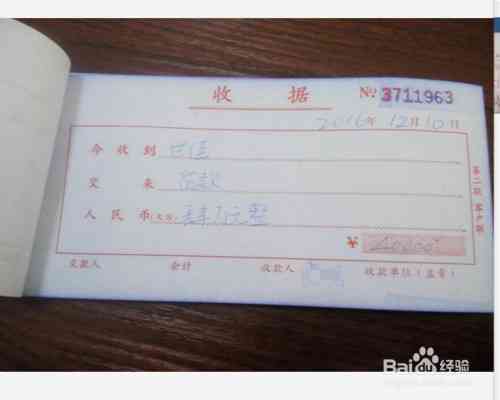 收 据 № 3711963
2016年 12月 10日
今 收 到
交 来 货款
人 民 币(大写) 万元整
¥ 40000
交款人 会计 收款人 收款单位(盖章)
第二联 客户联
Bai 经验